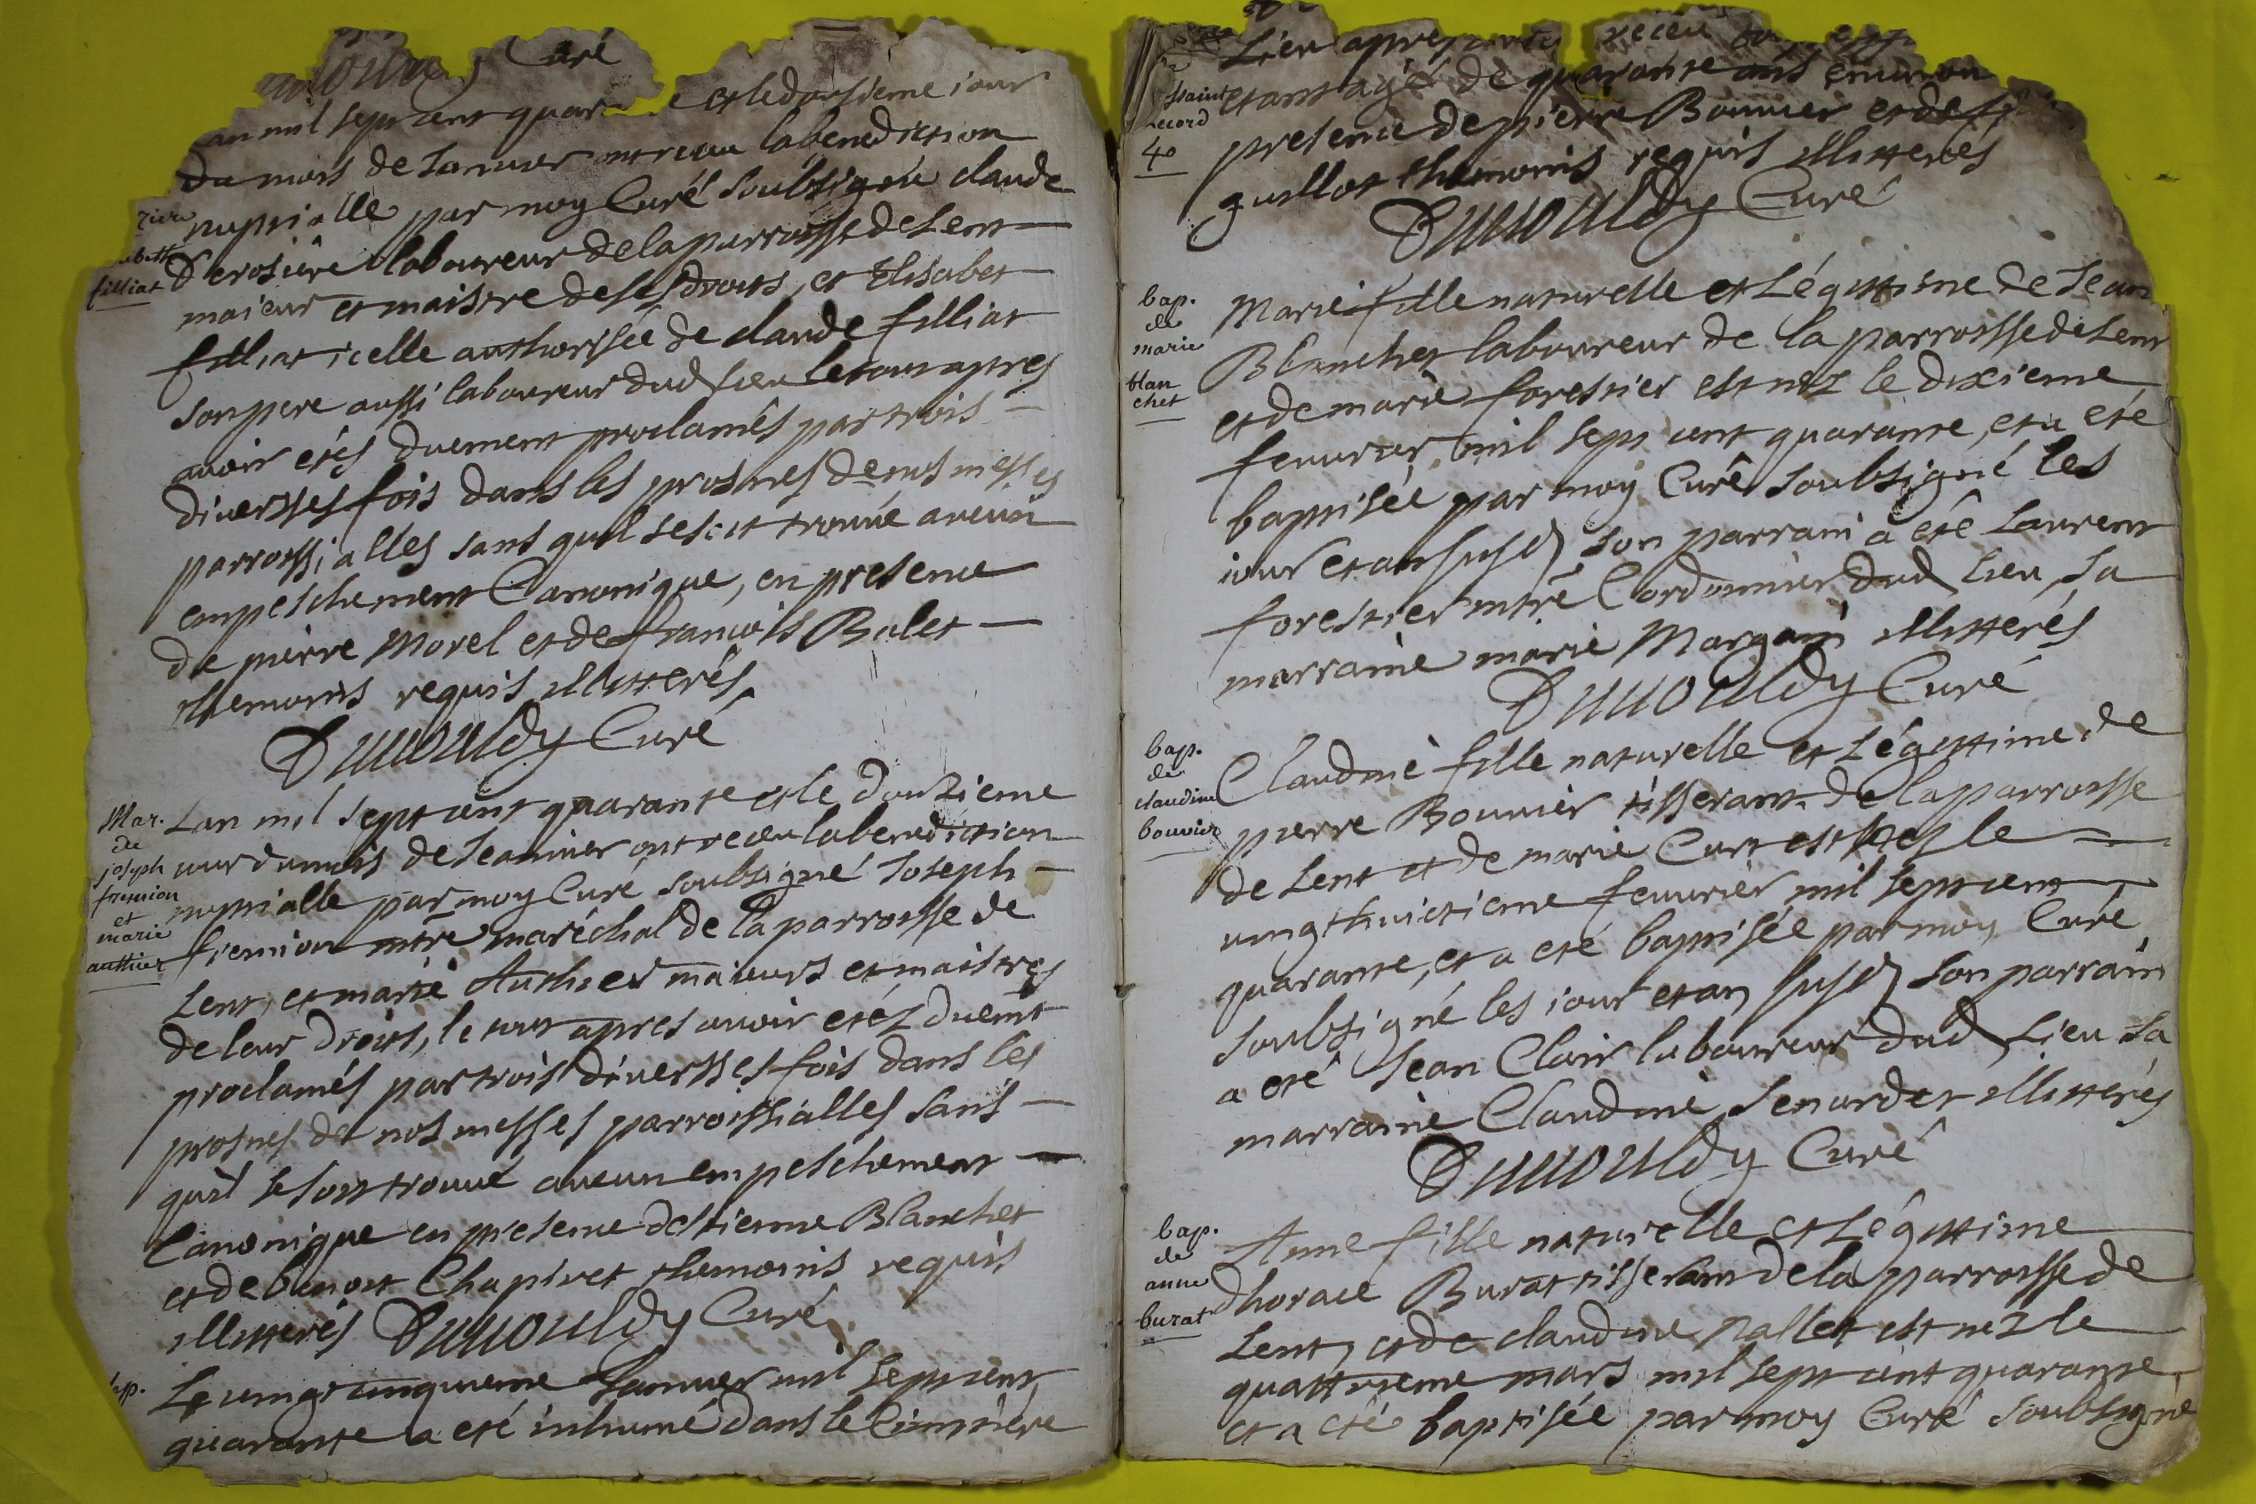 Curé
an mil sept cent quar e et le dousieme iour
du mois de Januier ont receu la benediction
nuptialle par moy Curé soubsigné claude
Derosiere laboureur de la parroisse de Lent
maieur et maistre de ses droits, et Elisabet
filliat icelle authorisée de claude filliat
son pere aussi laboureur dud lieu le tout apres
auoir etés duement proclamés par trois
diuersses fois dans les prosnes de nos messes
parroissialles sans quil se soit trouué aucun
empeschement Canonique, en presence
de pierre Morel et de francois Bulet
themoins requis illitterés
Dumouldy Curé
filliat
Mar.
de
joseph
fremion
et
marie
authier
Lan mil sept cent quarante et le douzieme
iour du mois de Jeanuier ont receu la benediction
nuptialle par moy Curé soubsigné Joseph
fremion mtre maréchal de la parroisse de
Lent, et marie Authier maieurs et maistres
de leur droits, le tout apres auoir etéz duemt
proclamés par trois diuersses fois dans les
prosnes de nos messes parroissialles sans
quil se soit trouué aucun empeschement
Canonique en presence destienne Blanchet
et de benoit Chapiret themoins requis
illitterés Dumouldy Curé
Le uingt cinquieme Januier mil sept cent
quarante a eté inhumé dans le Cimetière
Lieu apres receu
etant agé de quarante ans enuiron
presence de pierre Bouuier et de
guillot themoins requis illitterés
Dumouldy Curé
40
bap.
de
marie
blan
chet
Marie fille naturelle et Légittime de Jean
Blanchet laboureur de la parroisse de Lent
et de marie forestier est nez le dixieme
feuurier mil sept cent quarante, et a eté
baptisée par moy Curé soubsigné les
iour et an susd son parrain a eté Laurent
forestier mtre Cordonnier dud lieu, sa
marraine marie Margain illitterés
Dumouldy Curé
bap.
de
claudine
bouuier
Claudine fille naturelle et Légittime de
pierre Bouuier tisserant de la parroisse
de Lent et de marie Curt est nes le
uingt huictieme feuurier mil sept cent
quarante, et a eté baptisée par moy Curé
soubsigné les iour et an susd son parrain
a eté Jean Clair laboureur dud Lieu sa
marraine Claudine Senardet illitterés
Dumouldy Curé
bap.
de
anne
burat
Anne fille naturelle et Légittime
dhorace Burat tisseran de la parroisse de
Lent, et de claudine pallet est nez le
quattrieme mars mil sept cent quarante
et a eté baptisée par moy Curé soubsigné